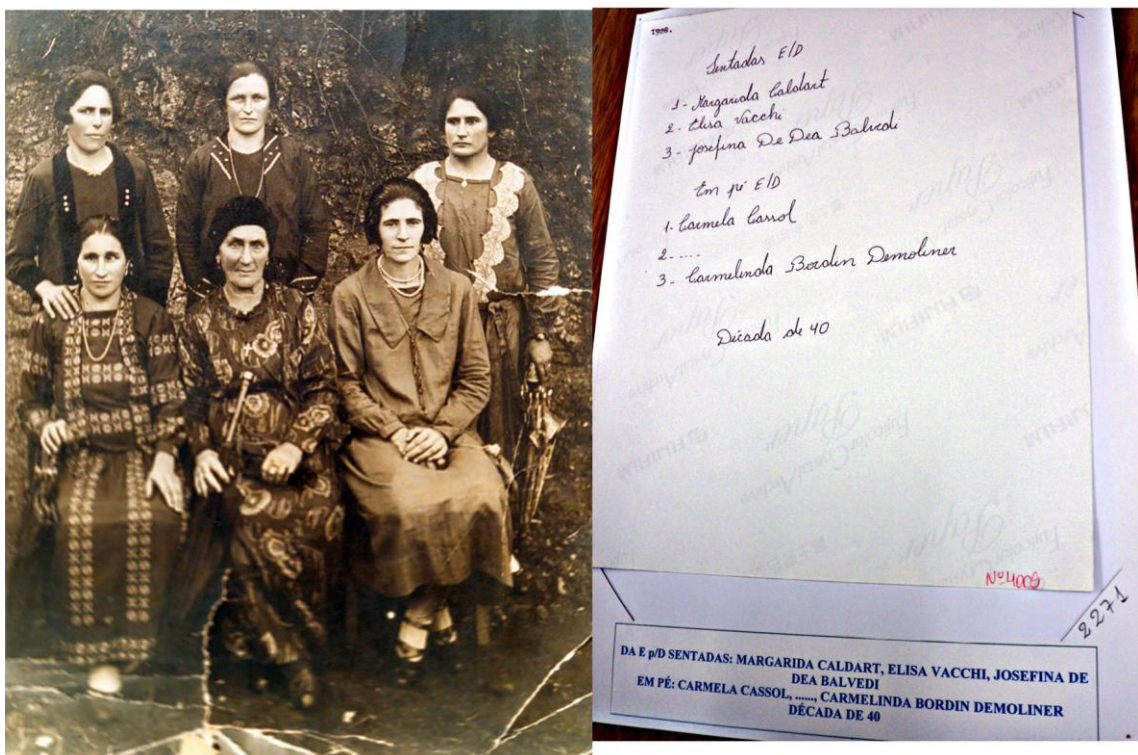 1980.
Sentadas E/D
1- Margarida Caldart
2- Elisa Vacchi
3- Josefina De Dea Balvedi
Em pé E/D
1- Carmela Cassol
2- ....
3- Carmelinda Bordin Demoliner
Década de 40
FUJIFILM
Fujicolor Crystal Archive
Paper
Nº 4009
2271
DA E p/D SENTADAS: MARGARIDA CALDART, ELISA VACCHI, JOSEFINA DE
DEA BALVEDI
EM PÉ: CARMELA CASSOL, ......, CARMELINDA BORDIN DEMOLINER
DÉCADA DE 40